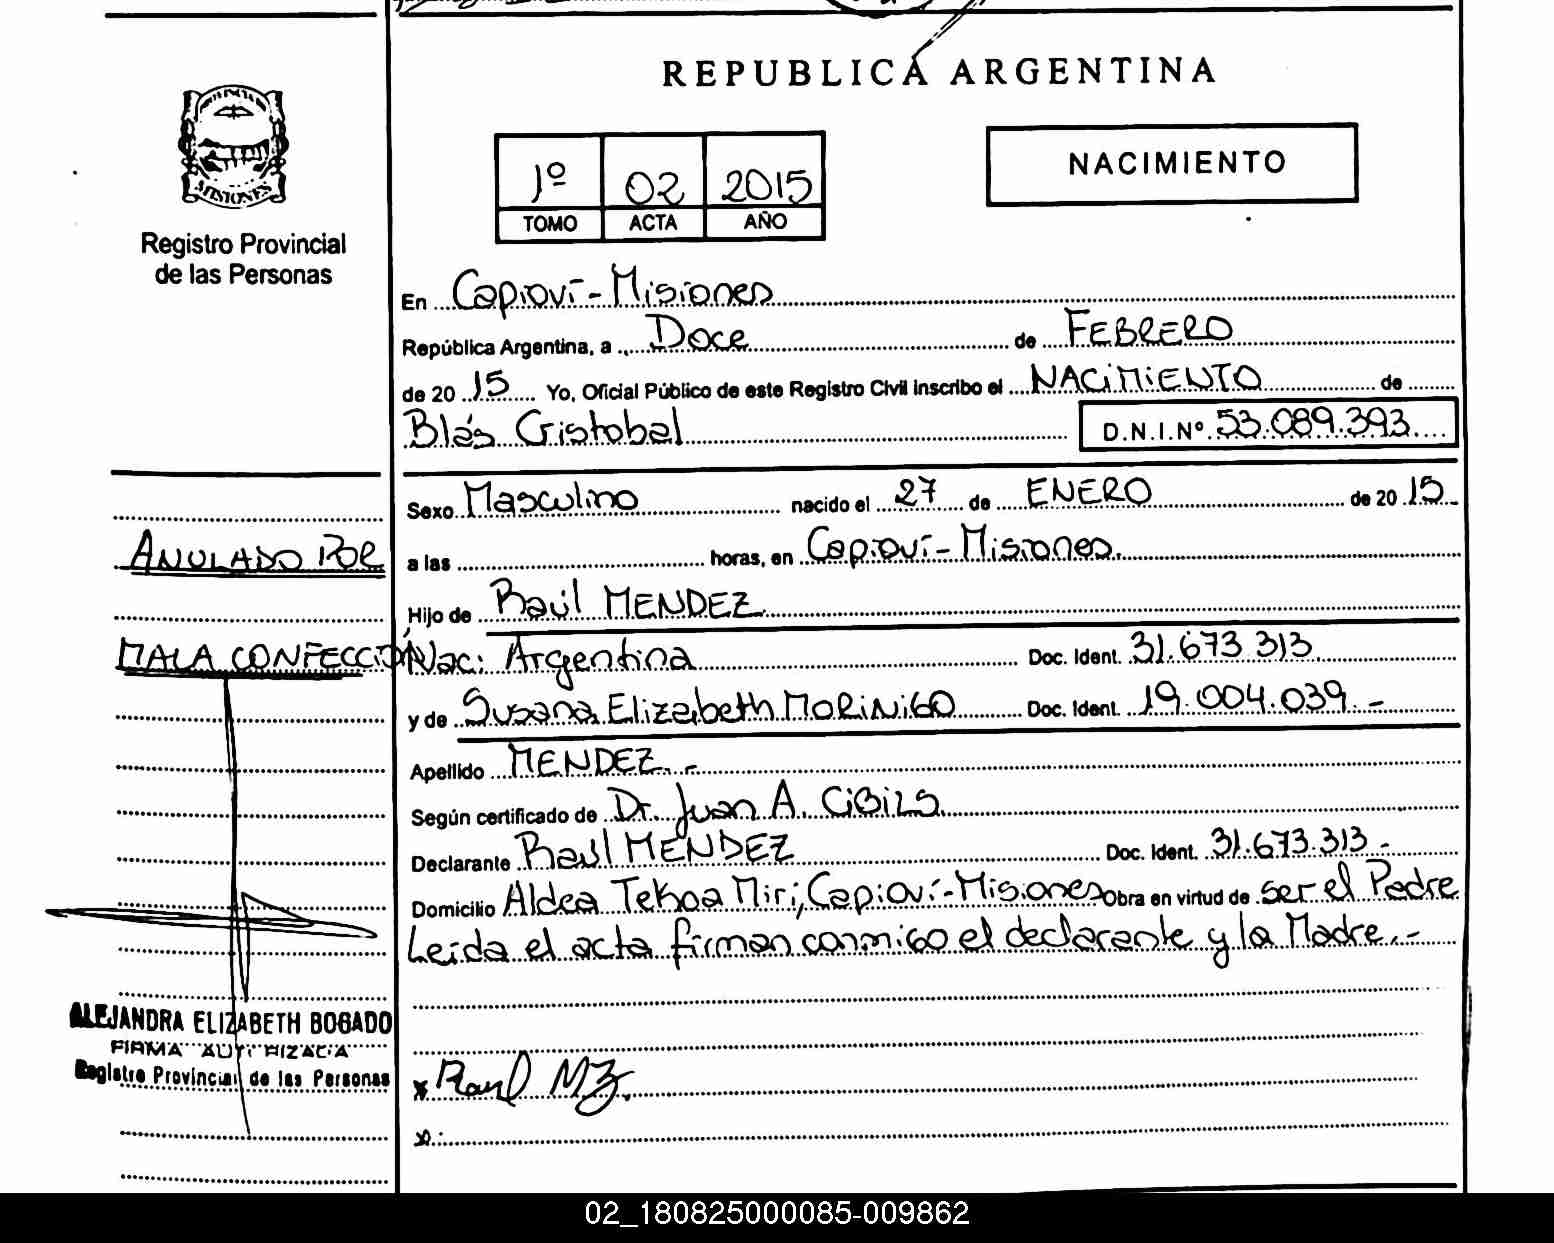 REPUBLICA ARGENTINA
MISIONES
Registro Provincial
de las Personas
1º 02 2015
TOMO ACTA AÑO
NACIMIENTO
En Capioví - Misiones
República Argentina, a Doce de FEBRERO
de 2015 Yo, Oficial Público de este Registro Civil inscribo el NACIMIENTO de
Blás Cristobal D.N.I.Nº 53.089.393
Sexo Masculino nacido el 27 de ENERO de 2015
a las horas, en Capioví - Misiones.
Hijo de Raúl MENDEZ.
Nac: Argentina Doc. Ident. 31.673.313
y de Susana Elizabeth MORINIGO Doc. Ident. 19.004.039.-
Apellido MENDEZ.-
Según certificado de Dr. Juan A. CIBILS.
Declarante Raúl MENDEZ Doc. Ident. 31.673.313-
Domicilio Aldea Tekoa Miri, Capioví - Misiones Obra en virtud de ser el Padre
Leida el acta firman conmigo el declarante y la Madre.-
x Raul MZ.
x.
ANULADO POR
MALA CONFECCIÓN
ALEJANDRA ELIZABETH BOGADO
FIRMA AUTORIZADA
Registro Provincial de las Personas
02_180825000085-009862